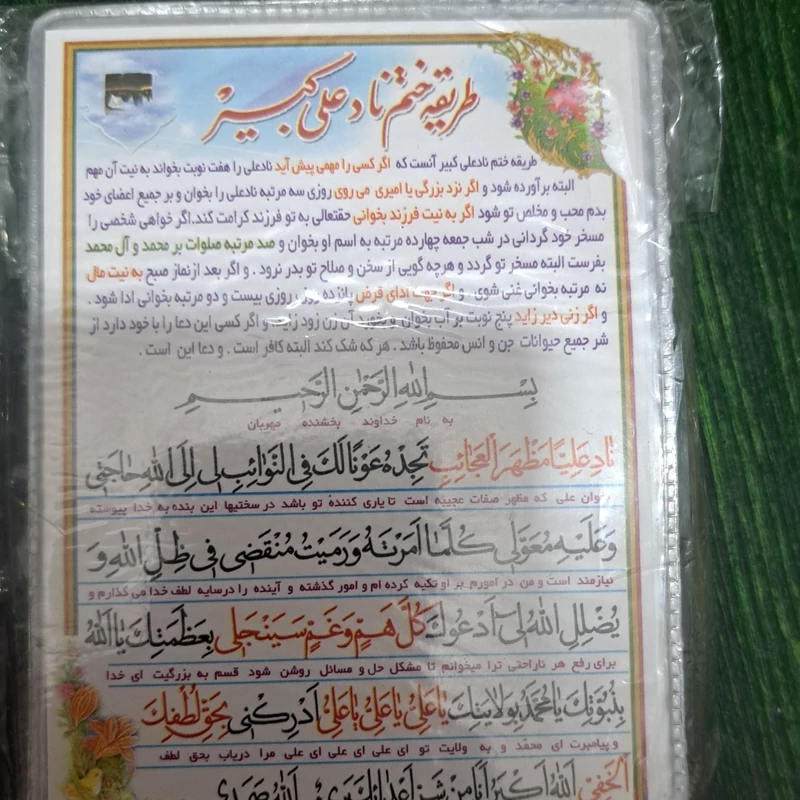 طریقه ختم ناد علی کبیر
طریقه ختم نادعلی کبیر آنست که اگر کسی را مهمی پیش آید نادعلی را هفت نوبت بخواند به نیت آن مهم
البته برآورده شود و اگر نزد بزرگی یا امیری می روی روزی سه مرتبه نادعلی را بخوان و بر جمیع اعضای خود
بدم محب و مخلص تو شود اگر به نیت فرزند بخوانی حقتعالی به تو فرزند کرامت کند.اگر خواهی شخصی را
مسخر خود گردانی در شب جمعه چهارده مرتبه به اسم او بخوان و صد مرتبه صلوات بر محمد و آل محمد
بفرست البته مسخر تو گردد و هرچه گویی از سخن و صلاح تو بدر نرود . و اگر بعد ازنماز صبح به نیت مال
نه مرتبه بخوانی غنی شوی . و اگر جهت ادای قرض پانزده روز، روزی بیست و دو مرتبه بخوانی ادا شود .
و اگر زنی دیر زاید پنج نوبت بر آب بخوان و بخورد آن زن زود زاید و اگر کسی این دعا را با خود دارد از
شر جمیع حیوانات جن و انس محفوظ باشد . هر که شک کند البته کافر است . و دعا این است .
بسم الله الرحمن الرحیم
به نام خداوند بخشنده مهربان
نادِ عَلِیّاً مَظْهَرَ الْعَجائِبِ تَجِدْهُ عَوْناً لَکَ فِی النَّوائِبِ لی اِلَی اللهِ حاجَتی
بخوان علی که مظهر صفات عجیبه است تا یاری کننده تو باشد در سختیها این بنده به خدا پیوسته
وَعَلَیْهِ مُعَوَّلی کُلَّما اَمَرْتَهُ وَرَمَیْتُ مُنْقَضی فی ظِلِّ اللهِ وَ
نیازمند است و من در امورم بر او تکیه کرده ام و امور گذشته و آینده را درسایه لطف خدا می گذارم و
یُضْلِلِ اللهُ لی اَدْعُوکَ کُلَّ هَمٍّ وَغَمٍّ سَیَنْجَلی بِعَظَمَتِکَ یا اَللهُ
برای رفع هر ناراحتی ترا میخوانم تا مشکل حل و مسائل روشن شود قسم به بزرگیت ای خدا
بِنُبُوَّتِکَ یا مُحَمَّدُ بِوِلایَتِکَ یا عَلِیُّ یا عَلِیُّ یا عَلِیُّ اَدْرِکْنی بِحَقِّ لُطْفِکَ
و پیامبرت ای محمّد و به ولایت تو ای علی ای علی ای علی مرا دریاب بحق لطف
الْخَفِیِّ اَللهُ اَکْبَرُ اَنَا مِنْ شَرِّ اَعْدائِکَ